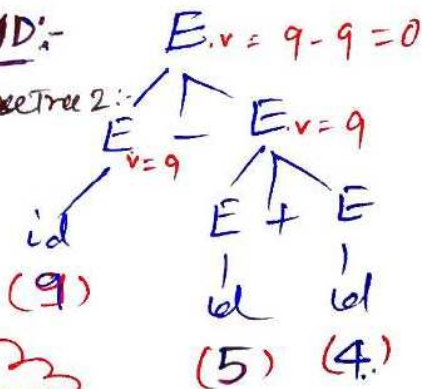 D:-
E.v = 9 - 9 = 0
Tree 2:-
E - E.v = 9
v = 9
id E + E
(9) id id
(5) (4.)